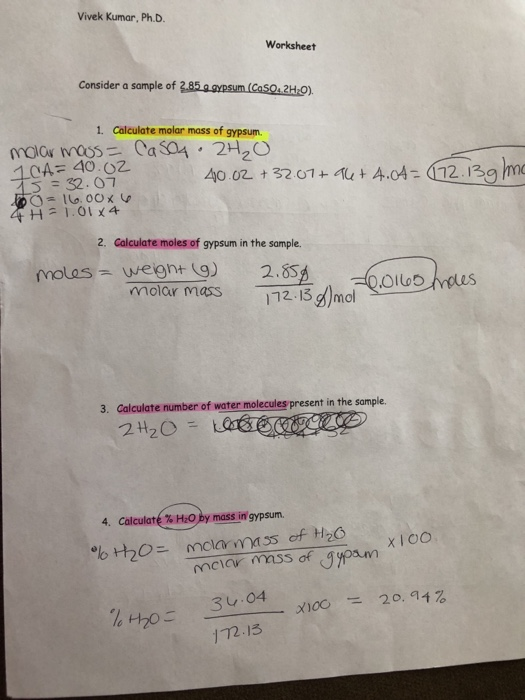 Vivek Kumar, Ph.D.
Worksheet
Consider a sample of 2.85 g gypsum (CaSO4.2H2O).
1. Calculate molar mass of gypsum.
molar mass = CaSO4 · 2H2O
1 CA = 40.02
1 S = 32.07
6 O = 16.00 x 6
4 H = 1.01 x 4
40.02 + 32.07 + 96 + 4.04 = 172.13 g/mo
2. Calculate moles of gypsum in the sample.
moles = weight (g) / molar mass
2.85 g / 172.13 g/mol = 0.0165 moles
3. Calculate number of water molecules present in the sample.
2H2O =
4. Calculate % H2O by mass in gypsum.
% H2O = molar mass of H2O / molar mass of gypsum x 100
% H2O = 36.04 / 172.13 x100 = 20.94%